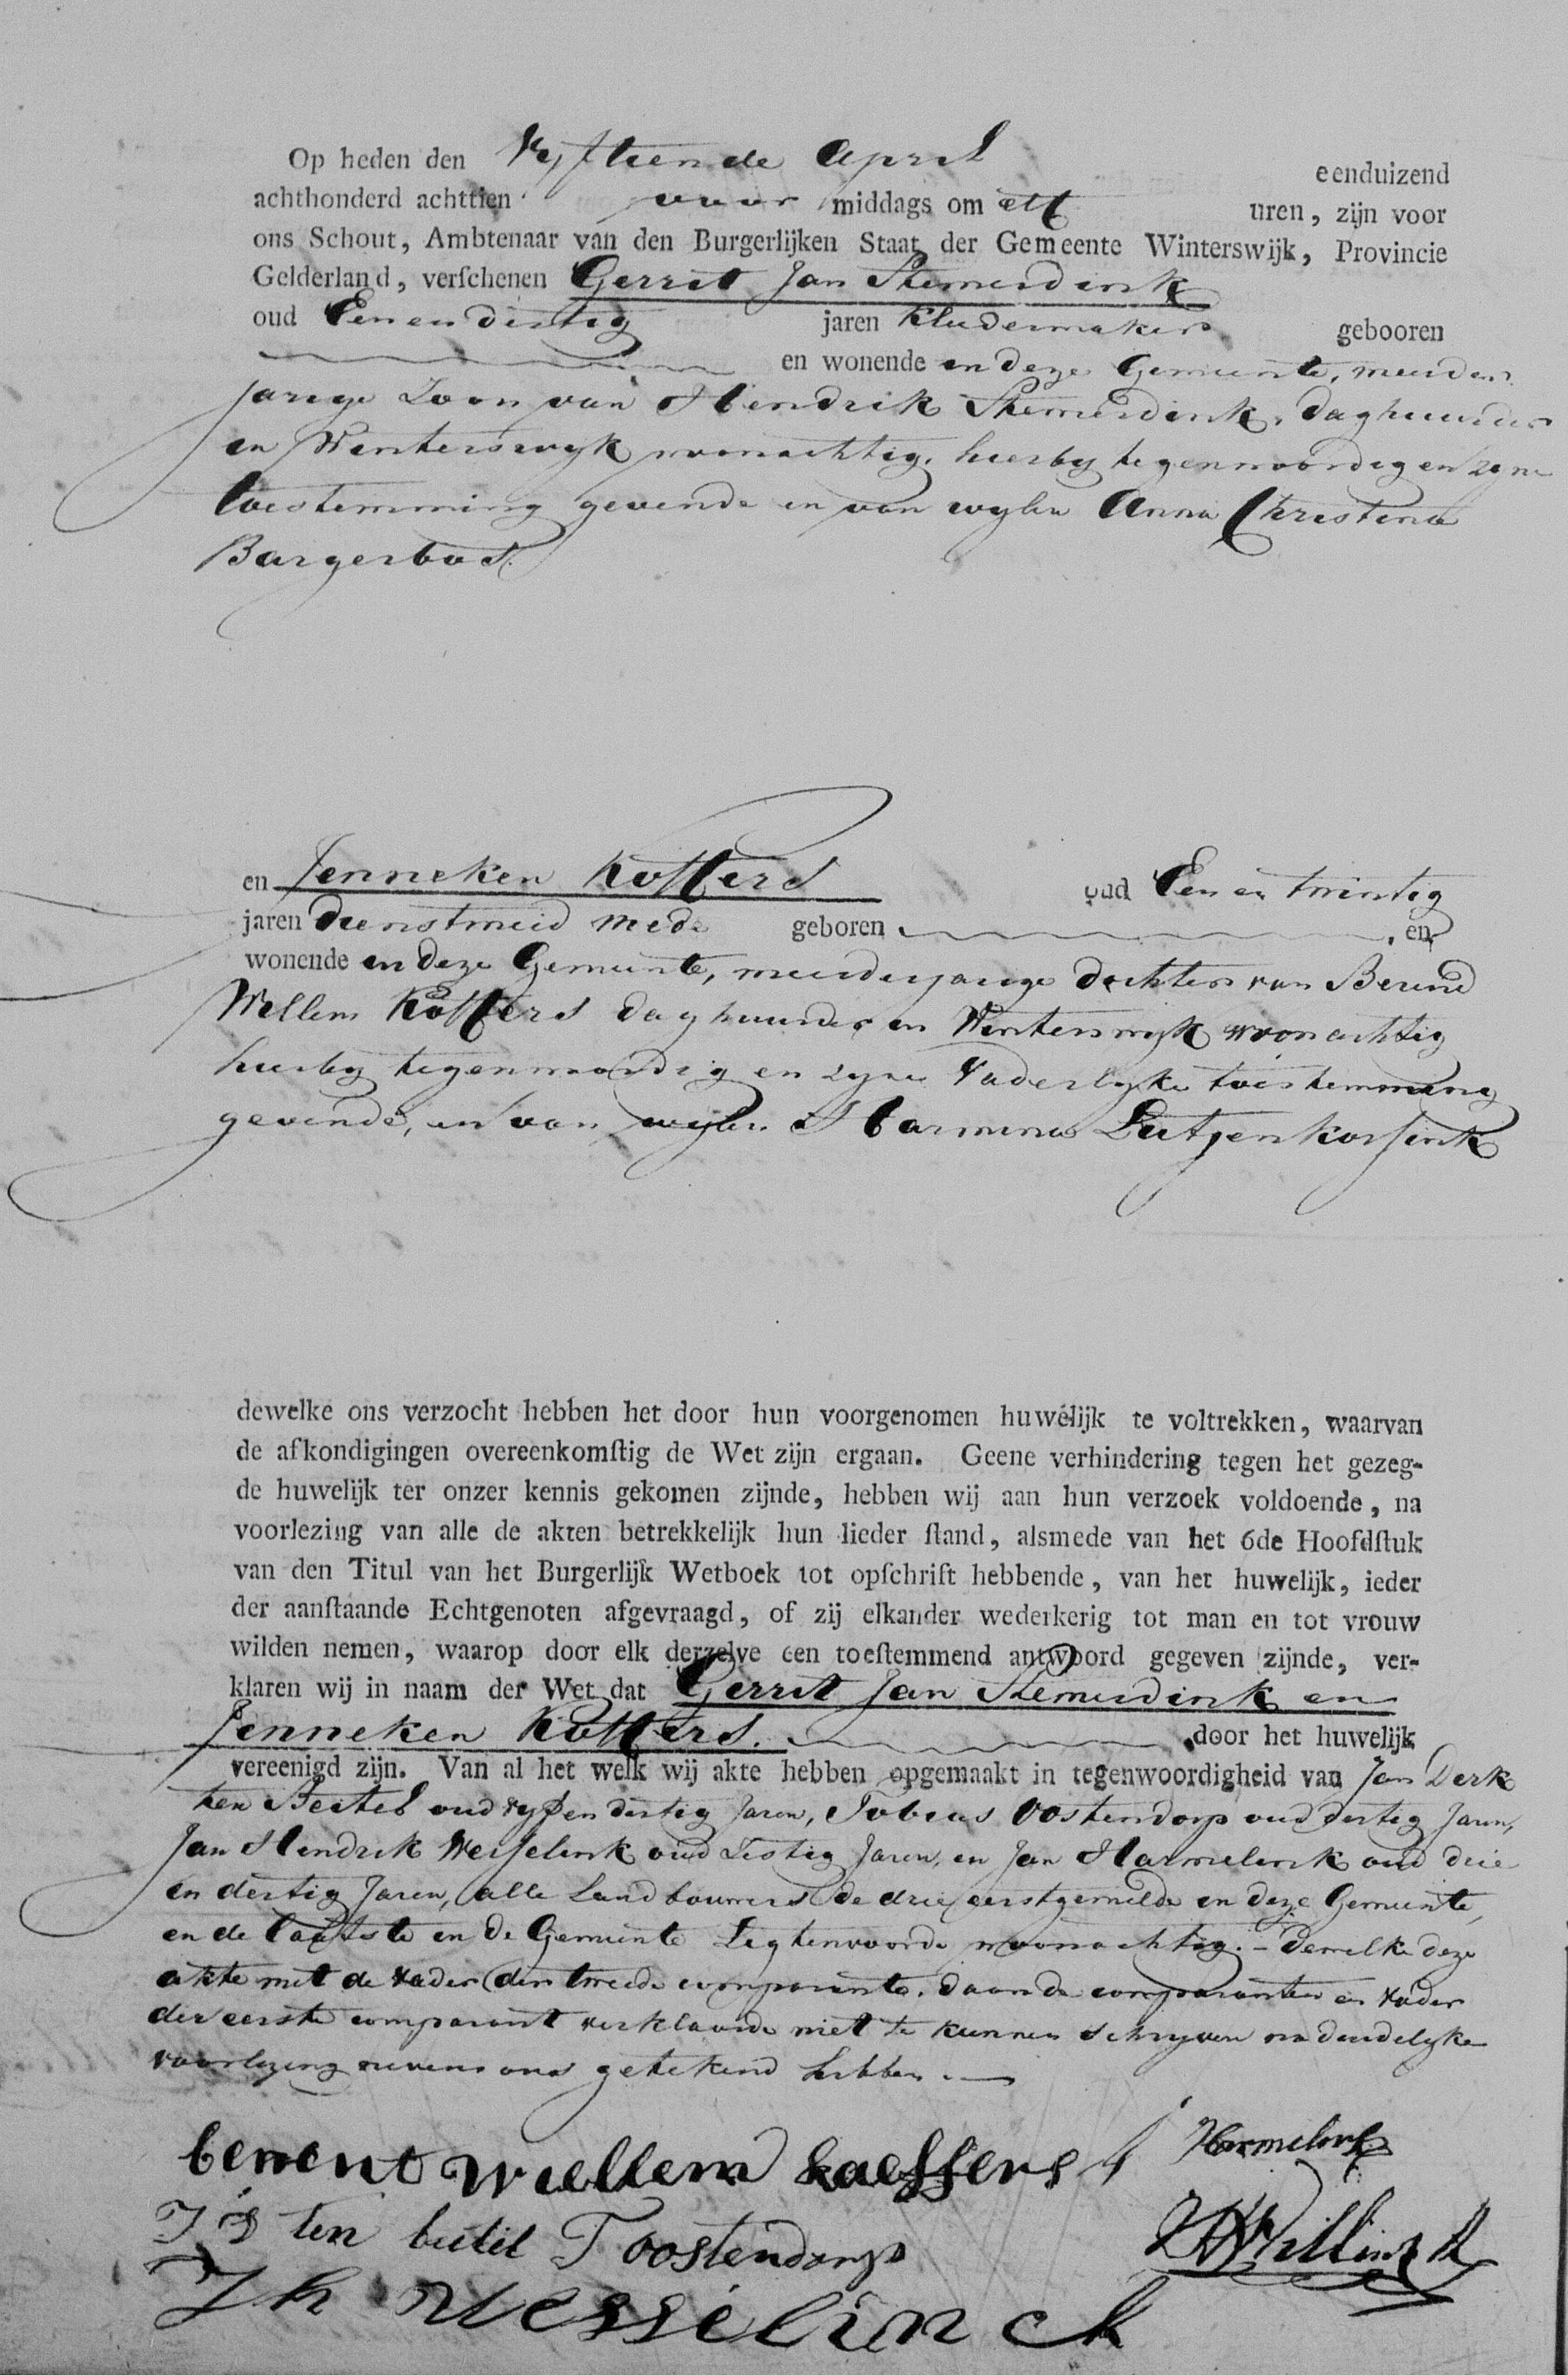 Op heden den Vyftiende April eenduizend
achthonderd achttien voor middags om elf uren, zijn voor
ons Schout, Ambtenaar van den Burgerlijken Staat der Gemeente Winterswijk, Provincie
Gelderland, verschenen Gerrit Jan Stemerdink
oud Eenendertig jaren kledermaker gebooren
en wonende in deze Gemeente, meerder
jarige Zoon van Hendrik Stemerdink, daghuurder
in Winterswyk woonachtig, hierby tegenwoordig en zyne
toestemming gevende en van wylen Anna Christina
Bargerbos.
en Jenneken Kössers oud Een en twintig
jaren dienstmeid mede geboren en
wonende in deze Gemeente, meerderjarige dochter van Berend
Willem Kössers daghuurder in Winterswyk woonachtig
hierby tegenwoordig en zyne Vaderlyke toestemming
gevende, en van wylen Harmina Lutjenkossink
dewelke ons verzocht hebben het door hun voorgenomen huwelijk te voltrekken, waarvan
de afkondigingen overeenkomstig de Wet zijn ergaan. Geene verhindering tegen het gezeg-
de huwelijk ter onzer kennis gekomen zijnde, hebben wij aan hun verzoek voldoende, na
voorlezing van alle de akten betrekkelijk hun lieder stand, alsmede van het 6de Hoofdstuk
van den Titul van het Burgerlijk Wetboek tot opschrift hebbende, van het huwelijk, ieder
der aanstaande Echtgenoten afgevraagd, of zij elkander wederkerig tot man en tot vrouw
wilden nemen, waarop door elk derzelve een toestemmend antwoord gegeven zijnde, ver-
klaren wij in naam der Wet dat Gerrit Jan Stemerdink en
Jenneken Kössers. door het huwelijk
vereenigd zijn. Van al het welk wij akte hebben opgemaakt in tegenwoordigheid van Jan Derk
ten Beitel oud vyf en dertig Jaren, Tobias Oostendorp oud dertig Jaren,
Jan Hendrik Wesselink oud Zestig Jaren, en Jan Harmelink oud drie
en dertig Jaren, alle Landbouwers de drie eerstgemelde in deze Gemeente,
en de laatste in de Gemeente Ligtenvoorde woonachtig. - Dewelke deze
akte met de Vader der tweede comparante, daar de comparanten en Vader
der eerste comparant verklaarde niet te kunnen schryven na duidelyke
voorlezing nevens ons getekend hebben. —
berent wiellem kaessers J Harmelink
J D ten beitel T oostendorp Willink
J h wesselinck